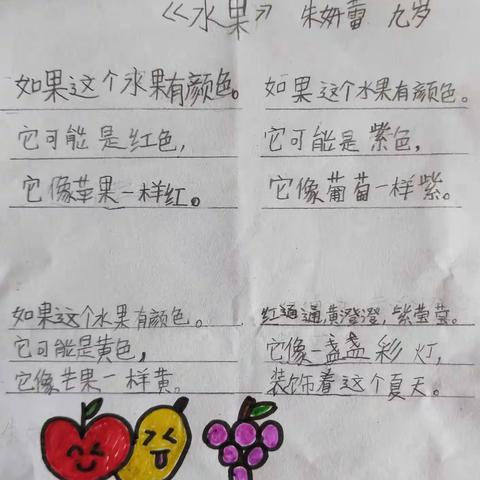 《水果》 朱妍蕾 九岁
如果这个水果有颜色。
它可能是红色，
它像苹果一样红。
如果这个水果有颜色。
它可能是紫色，
它像葡萄一样紫。
如果这个水果有颜色。
它可能是黄色，
它像芒果一样黄。
红通通，黄澄澄，紫莹莹。
它像一盏盏彩灯，
装饰着这个夏天。